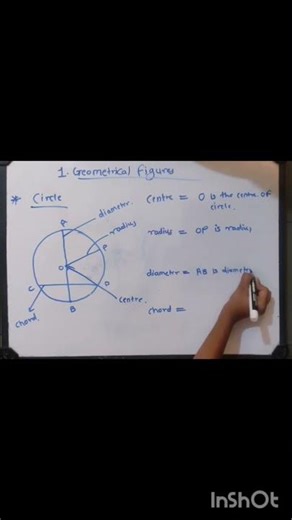 1. Geometrical figures
* Circle
A
diameter.
centre = O is the centre of
circle.
radius
P
radius = OP is radius
O
diameter = AB is diameter
C
D
centre.
B
chord.
chord =
InShOt